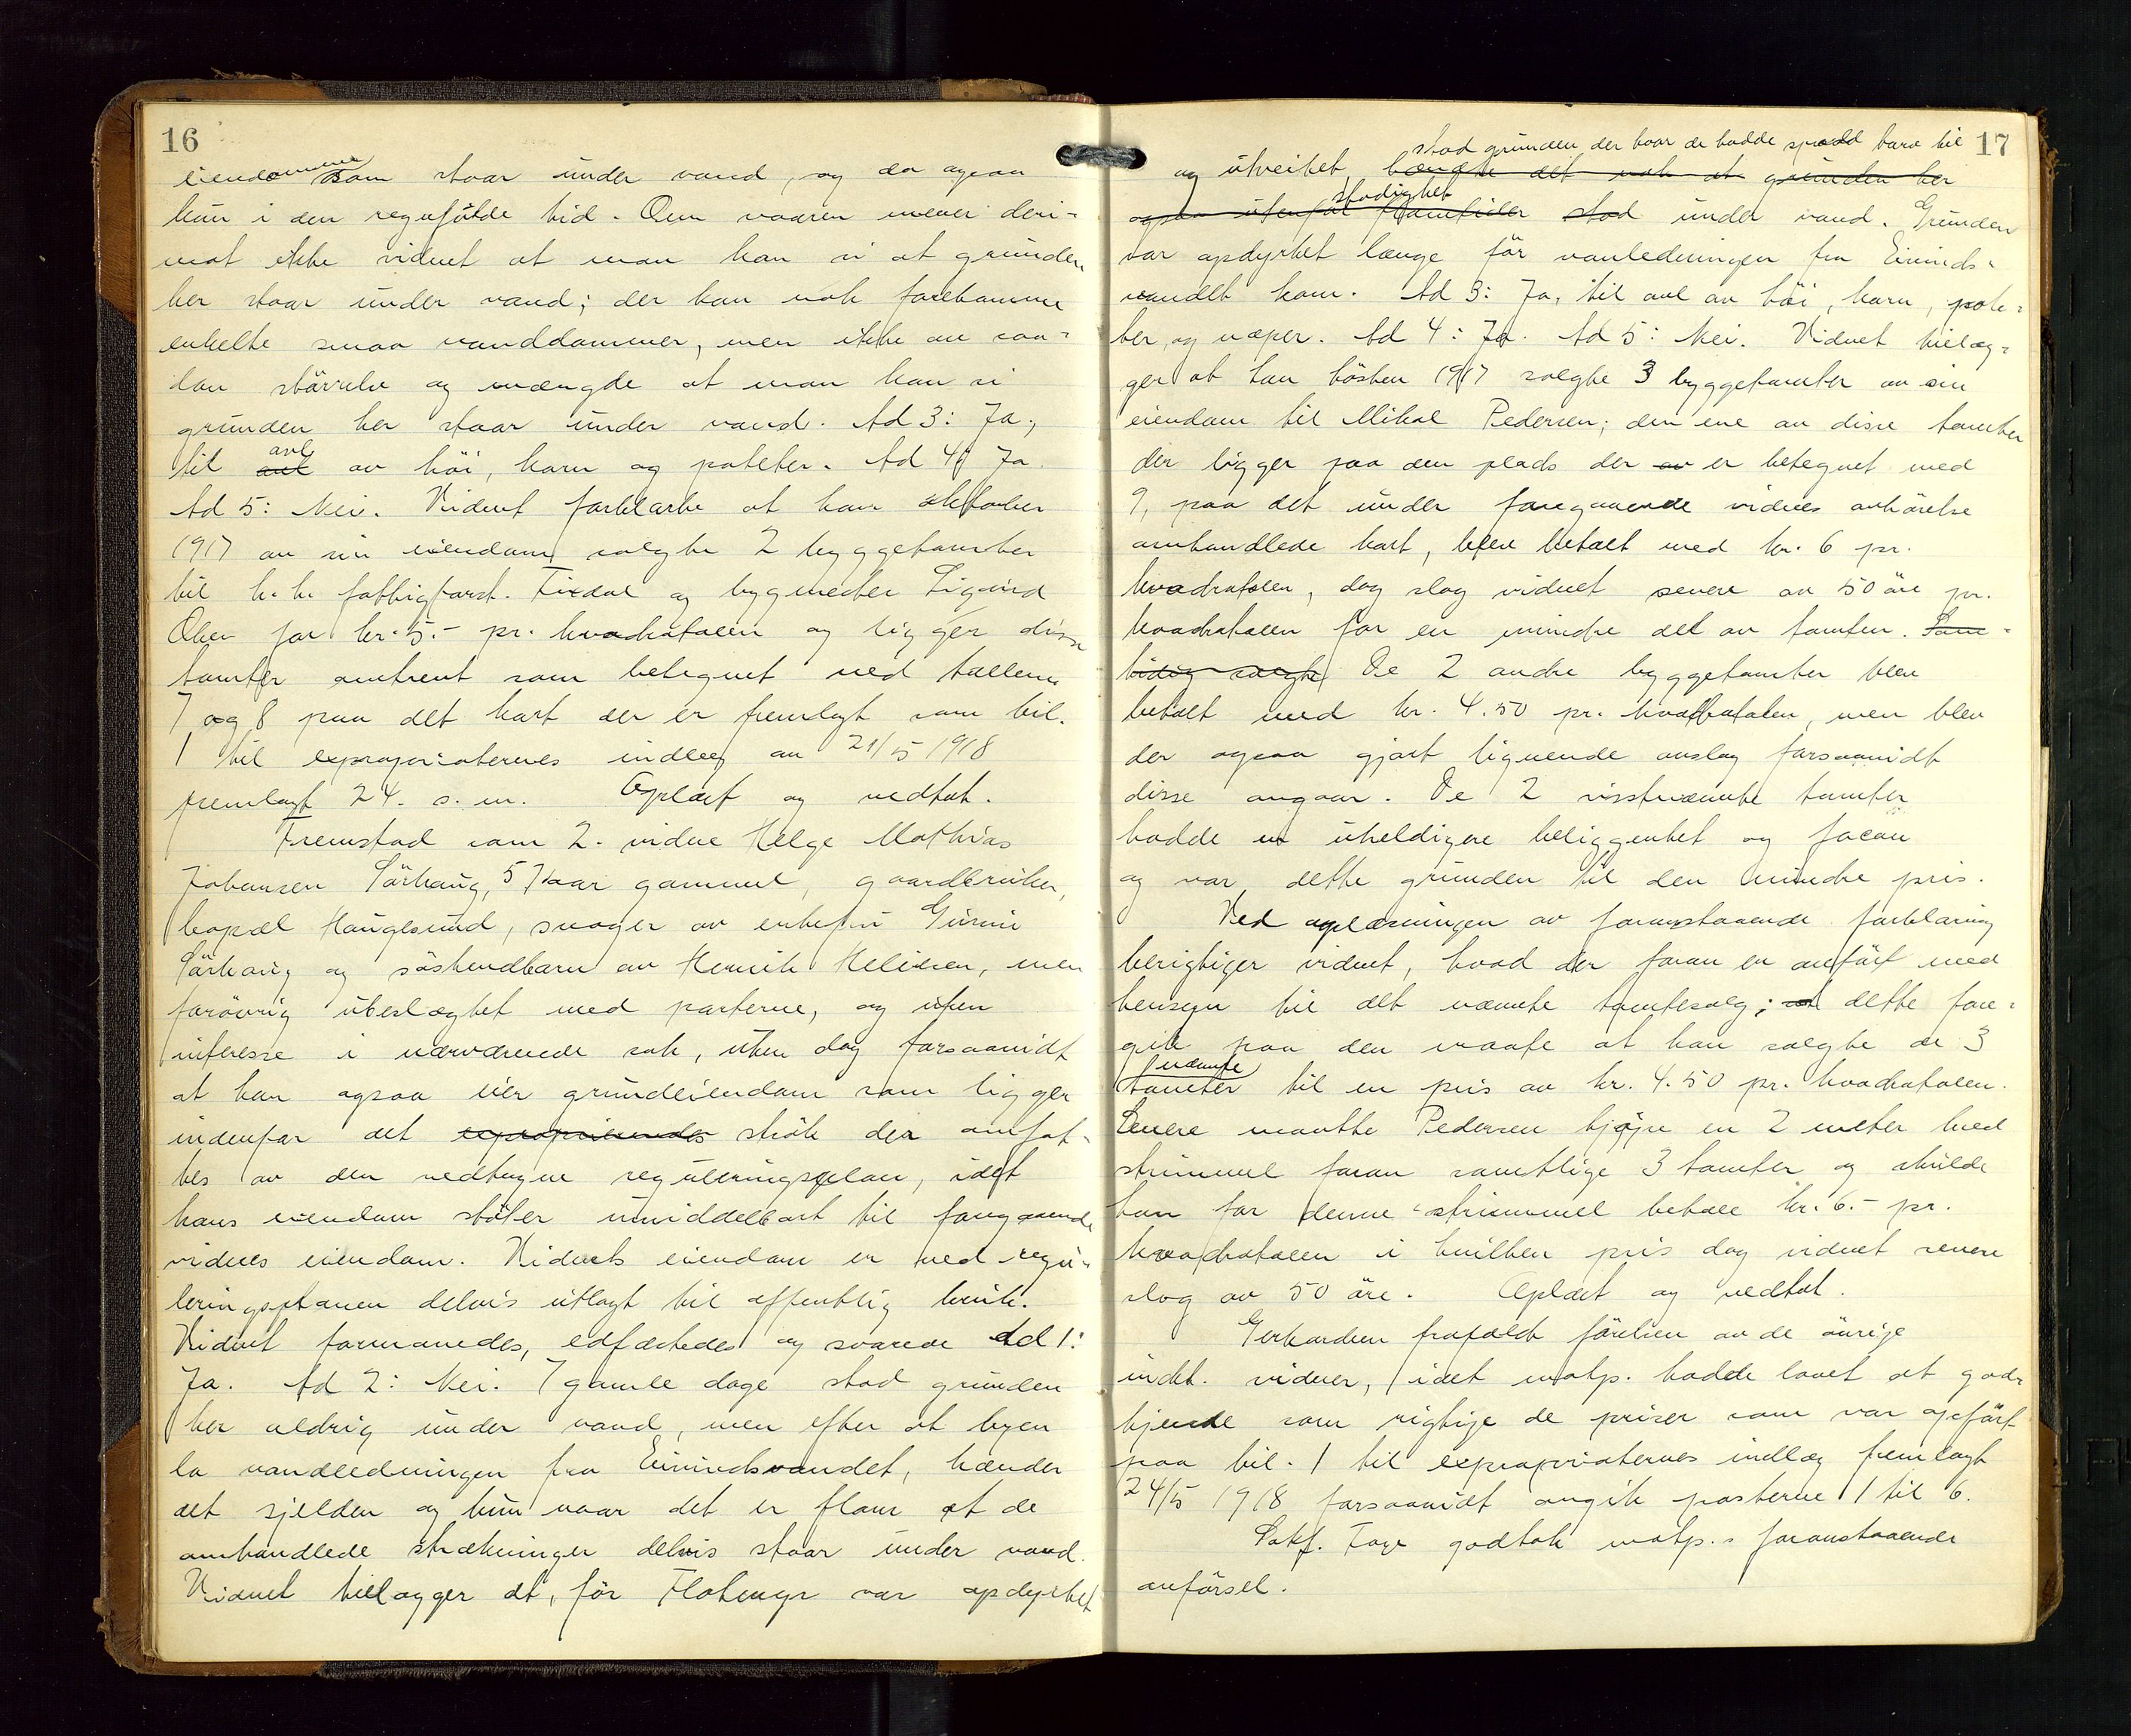 16
eiendommene som staar under vand, og da ogsaa
kun i den regnfulde tid. Om vaaren mener deri-
mot ikke vidnet at man kan si at grunden
her staar under vand; der kan nok forekomme
enkelte smaa vanddammer, men ikke av saa-
dan størrelse og mængde at man kan si
grunden her staar under vand. Ad 3: Ja,
til avl av höi, korn og poteter. Ad 4: Ja.
Ad 5: Nei. Vidnet forklarte at han oktober
1917 av sin eiendom solgte 2 byggetomter
til h.h. fattigforst. Fixdal og bygmester Sigurd
Olsen for kr. 5.- pr. kvadratalen og ligger disse
tomter omtrent som betegnet ved tallene
7 og 8 paa det kart der er fremlagt som bil.
1 til expropriaternes indlæg av 21/5 1918
fremlagt 24. s.m. Oplæst og vedtat.
Fremstod som 2. vidne Helge Mathias
Johansen Sörhaug, 57 aar gammel, gaardbruker,
bopæl Haugesund, svoger av enkefru Gurine
Sörhaug og söskendbarn av Henrik Helisen, men
forövrig ubeslægtet med parterne, og uten
interesse i nærværende sak, uten dog forsaavidt
at han ogsaa eier grundeiendom som ligger
indenfor det exproprierendes strök der omfat-
tes av den vedtagne reguleringsplan, idet
hans eiendom stöter umiddelbart til foregaaende
vidnes eiendom. Vidnets eiendom er ved regu-
leringsplanen delvis utlagt til offentlig bruk.
Vidnet formanedes, edfæstedes og svarede Ad 1:
Ja. Ad 2: Nei. I gamle dage stod grunden
her aldrig under vand, men efter at byen
la vandledningen fra Eivindsvandet, hænder
det sjelden og kun naar det er flom at de
omhandlede strækninger delvis staar under vand.
Vidnet tillægger at, før Flotmyr var opdyrket
17
stod grunden der hvor de hadde spadd torv til
og utveitet, hændte det nok at grunden her
stadighet
ogsaa utenfor flomtider stod under vand. Grunden
var opdyrket længe för vanledningen fra Eivinds-
vandet kom. Ad 3: Ja, til avl av höi, korn, pote-
ter, og næper. Ad 4: Ja. Ad 5: Nei. Vidnet tillæg-
ger at han hösten 1917 solgte 3 byggetomter av sin
eiendom til Mikal Pedersen; den ene av disse tomter
der ligger paa den plads der er betegnet med
9, paa det under foregaaende vidnes avhörelse
omhandlede kart, blev betalt med kr. 6 pr.
kvadratalen, dog slog vidnet senere av 50 öre pr.
kvadratalen for en mindre del av tomten. Sam-
tidig solgte De 2 andre byggetomter blev
betalt med kr. 4.50 pr. kvadratalen, men blev
der ogsaa gjort lignende avslag forsaavidt
disse angaar. De 2 sisstnævnte tomter
hadde en uheldigere beliggenhet og facon
og var dette grunden til den mindre pris.
Ved oplæsningen av foranstaaende forklaring
berigtiger vidnet, hvad der foran er anfört med
hensyn til det nævnte tomtesalg; dette fore-
gik paa den maate at han solgte de 3
nævnte
tomter til en pris av kr. 4.50 pr. kvadratalen.
Senere maatte Pedersen kjöpe en 2 meter bred
strimmel foran samtlige 3 tomter og skulde
han for denne strimmel betale kr. 6.- pr.
kvadratalen i hvilken pris dog vidnet senere
slog av 50 öre. Oplæst og vedtat.
Gerhardsen frafaldt förelsen av de övrige
indk. vidner, idet motp. hadde lovet at god-
kjende som rigtige de priser som var opfört
paa bil. 1 til expropriaternes indlæg fremlagt
24/5 1918 forsaavidt angik posterne 1 til 6.
Sakf. Foye godtok motp.s foranstaaende
anförsel.